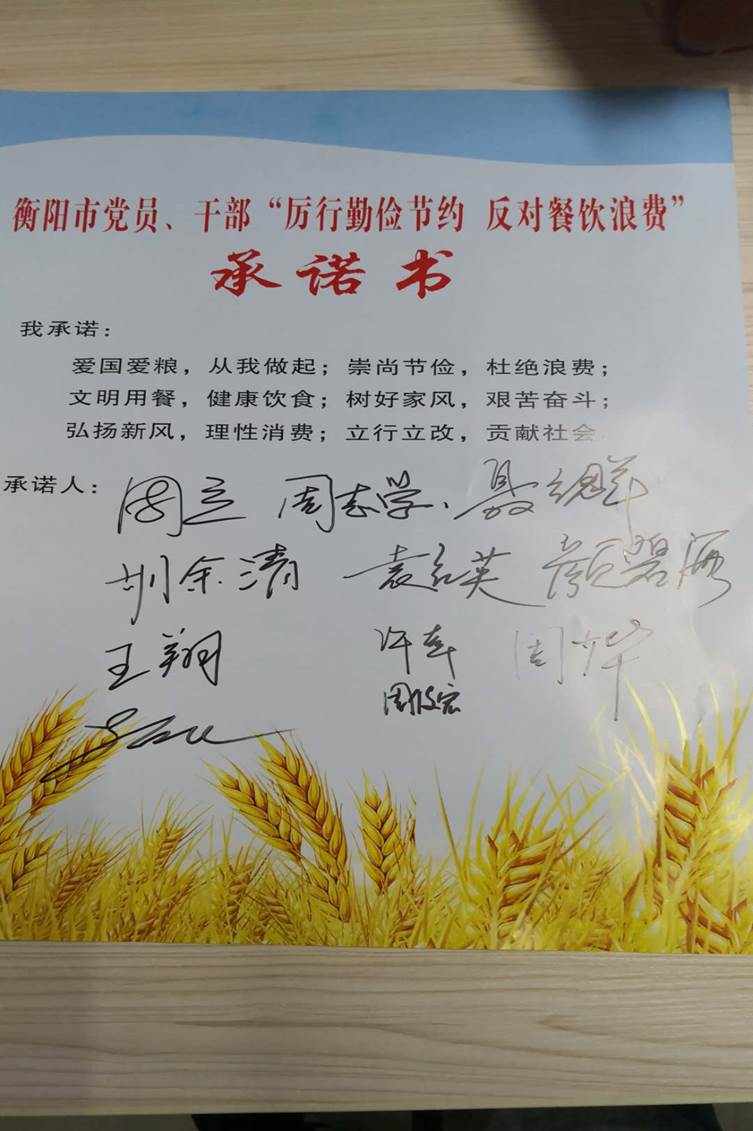 衡阳市党员、干部“厉行勤俭节约 反对餐饮浪费”
承诺书
我承诺：
爱国爱粮，从我做起；崇尚节俭，杜绝浪费；
文明用餐，健康饮食；树好家风，艰苦奋斗；
弘扬新风，理性消费；立行立改，贡献社会
承诺人： 周立 周志学
袁红英 颜碧海
王翔 许车 周华